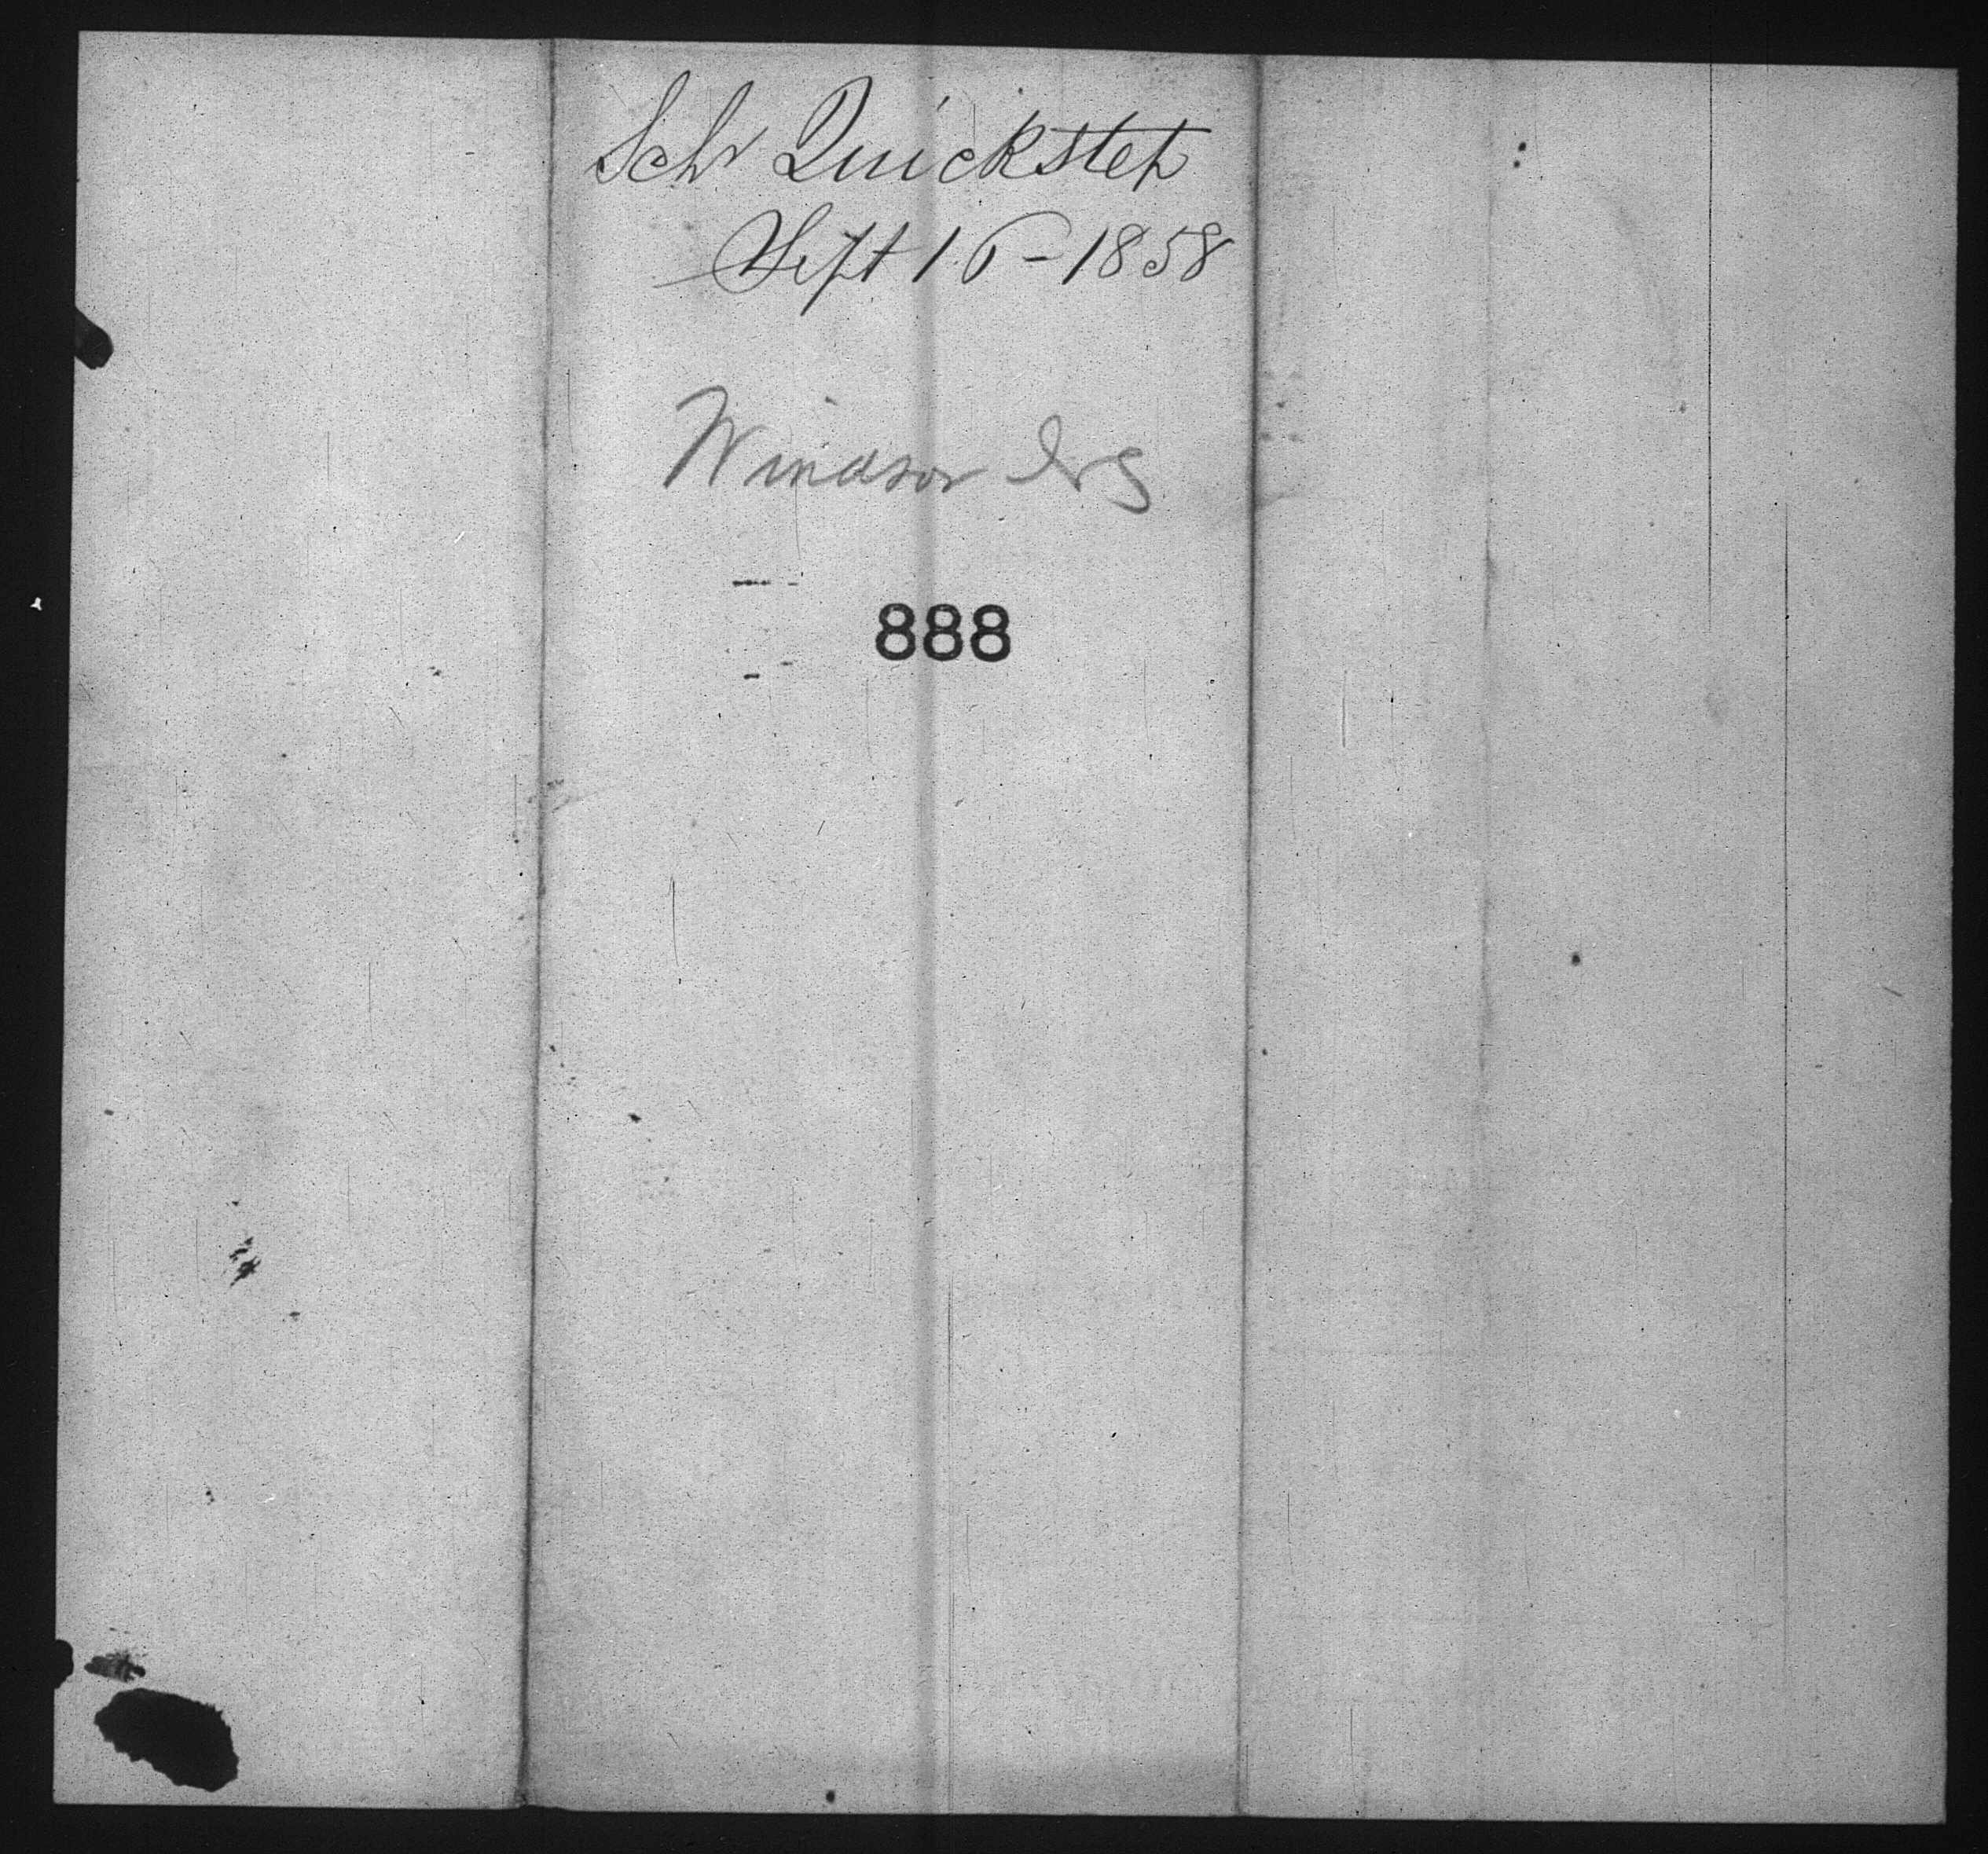 Sch Quickstep
Sept 16 - 1858
Windsor NS
888